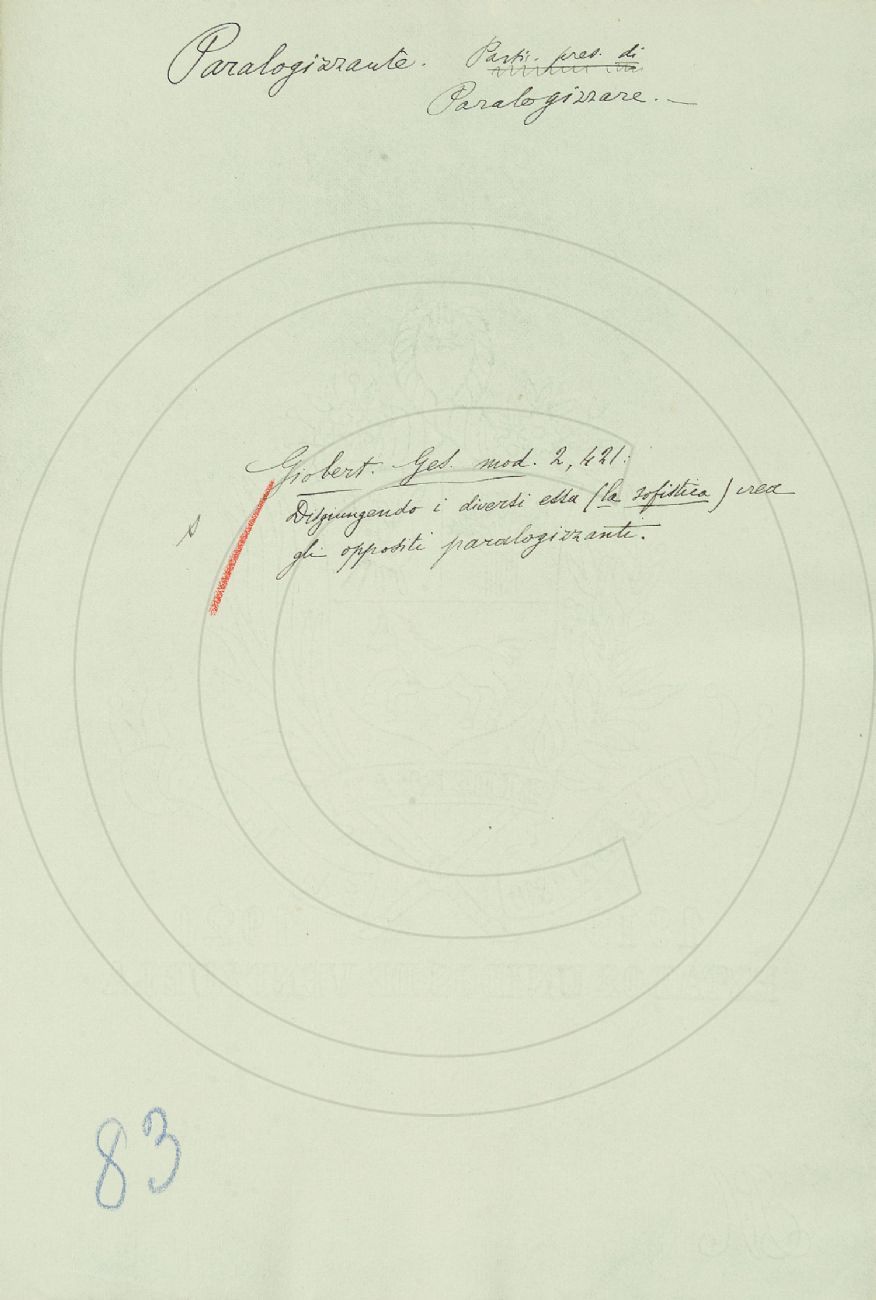 Paralogizzante. Parti. pres. di
Paralogizzare.—
Giobert. Ges. mod. 2, 421:
Disgiungendo i diversi essa (la sofistica) crea
gli oppositi paralogizzanti.
83